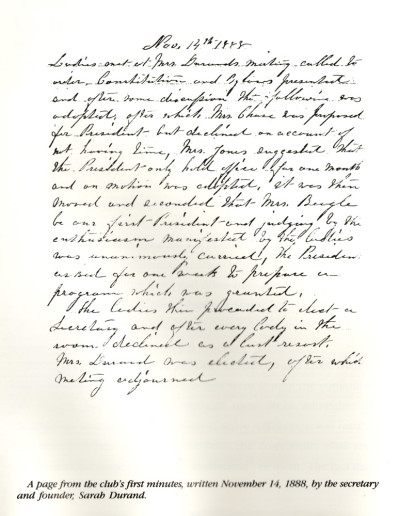 Nov. 14th 1888
Ladies met at Mrs Durands meeting called to
order, Constitution and By laws presented
and after some discussion the following was
adopted, after which Mrs Chase was proposed
for President but declined on account of
not having time, Mrs. Jones suggested that
the President only hold office for one month
and on motion was adopted, it was then
moved and seconded that Mrs. Beagle
be our first President and judging by the
enthusiasm manifested by the Ladies
was unanimously carried, the President
asked for one week to prepare a
program which was granted,
The ladies then proceeded to elect a
Secretary and after every body in the
room declined as a last resort,
Mrs. Durand was elected, after which
meeting adjourned
A page from the club's first minutes, written November 14, 1888, by the secretary
and founder, Sarah Durand.